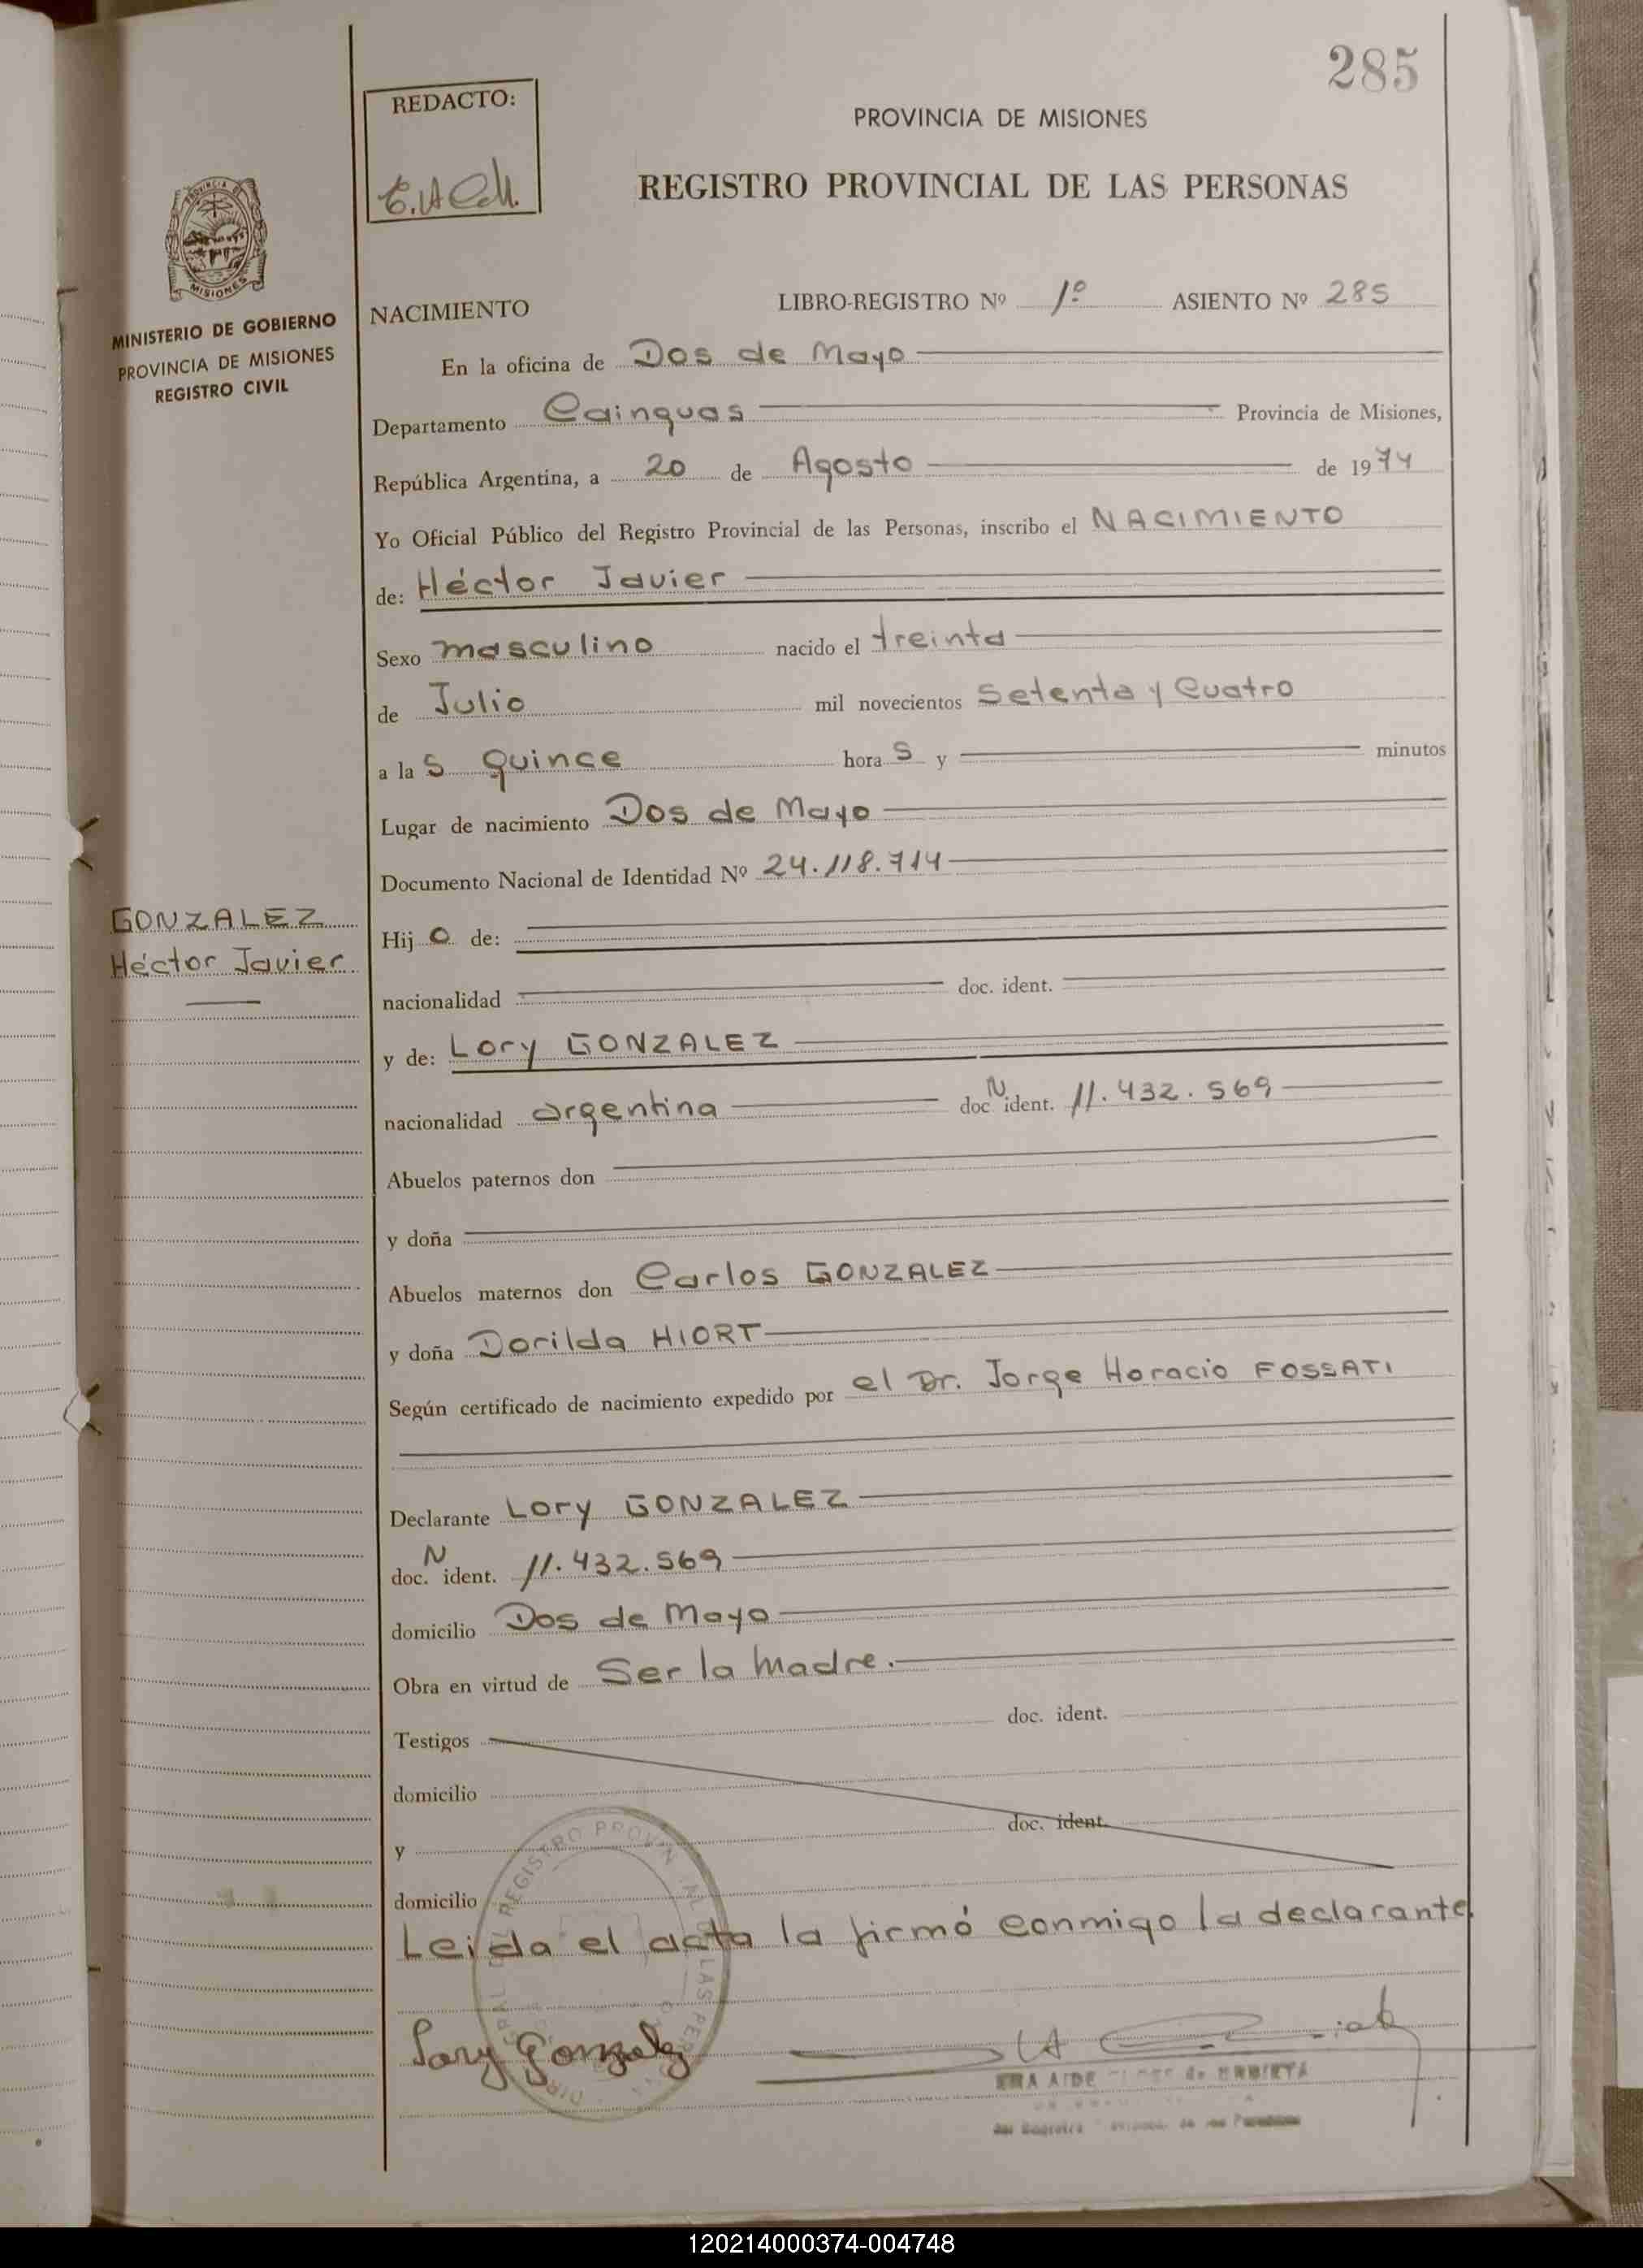 285
REDACTO:
PROVINCIA DE MISIONES
REGISTRO PROVINCIAL DE LAS PERSONAS
MISIONES
MINISTERIO DE GOBIERNO
PROVINCIA DE MISIONES
REGISTRO CIVIL
NACIMIENTO LIBRO-REGISTRO Nº 1º ASIENTO Nº 285
En la oficina de Dos de Mayo
Departamento Cainguas Provincia de Misiones,
República Argentina, a 20 de Agosto de 1974
Yo Oficial Público del Registro Provincial de las Personas, inscribo el NACIMIENTO
de: Héctor Javier
Sexo masculino nacido el treinta
de Julio mil novecientos Setenta y Cuatro
a la s quince hora s y minutos
Lugar de nacimiento Dos de Mayo
Documento Nacional de Identidad Nº 24.118.714
GONZALEZ
Héctor Javier
Hij o de:
nacionalidad doc. ident.
y de: Lory GONZALEZ
nacionalidad argentina doc N ident. 11.432.569
Abuelos paternos don
y doña
Abuelos maternos don Carlos GONZALEZ
y doña Dorilda HIORT
Según certificado de nacimiento expedido por el Dr. Jorge Horacio FOSSATI
Declarante Lory GONZALEZ
doc. N ident. 11.432.569
domicilio Dos de Mayo
Obra en virtud de Ser la madre.
Testigos doc. ident.
domicilio
y doc. ident.
domicilio
Leida el acta la firmó conmigo la declarante
Lory Gonzalez
120214000374-004748